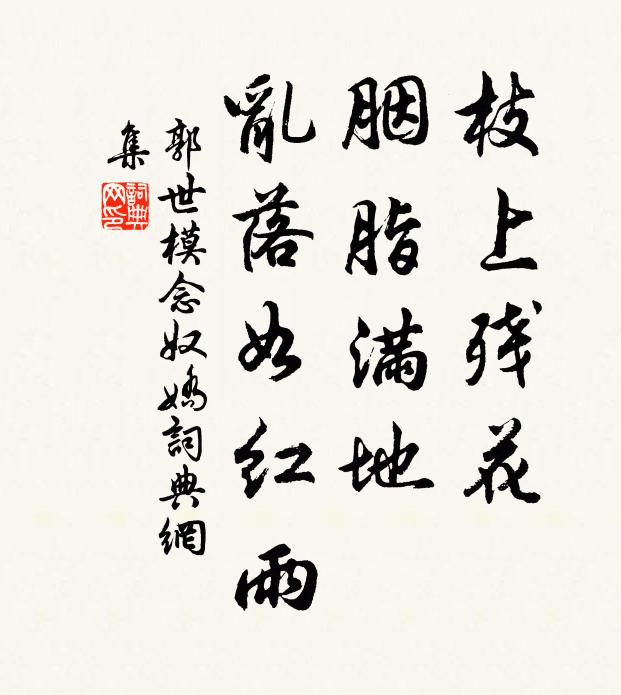 枝上残花
胭脂满地
亂落如红雨
郭世模念奴嬌詞典網
集
詞典
网印